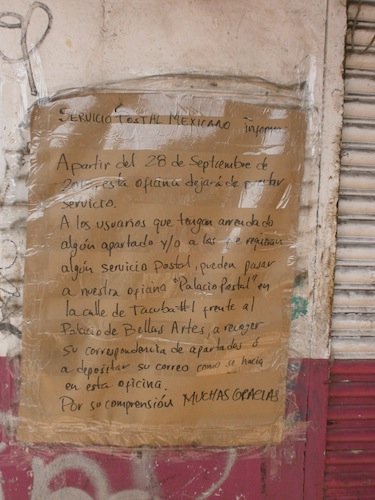 SERVICIO POSTAL MEXICANO informa
Apartir del 28 de Septiembre de
esta oficina dejará de prestar
servicio.
A los usuarios que tengan arrendado
algún apartado y/o a los que requieran
algún servicio Postal, pueden pasar
a nuestra oficina "Palacio Postal" en
la calle de Tacuba #1 frente al
Palacio de Bellas Artes, a recoger
su correspondencia de apartados ó
a depositar su correo como se hacía
en esta oficina.
Por su comprensión MUCHAS GRACIAS